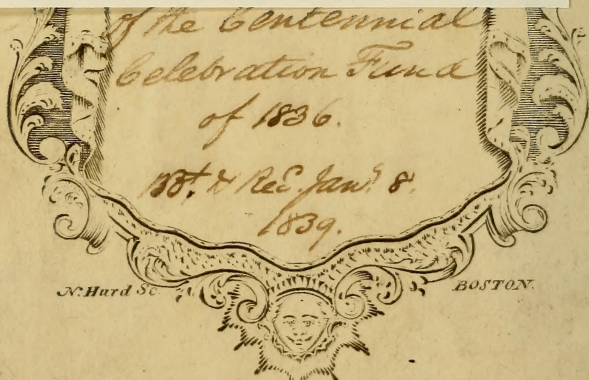 of the Centennial
Celebration Fund
of 1836.
Bot. & Rec. Jany. 8.
1839.
N. Hurd Sc. BOSTON.